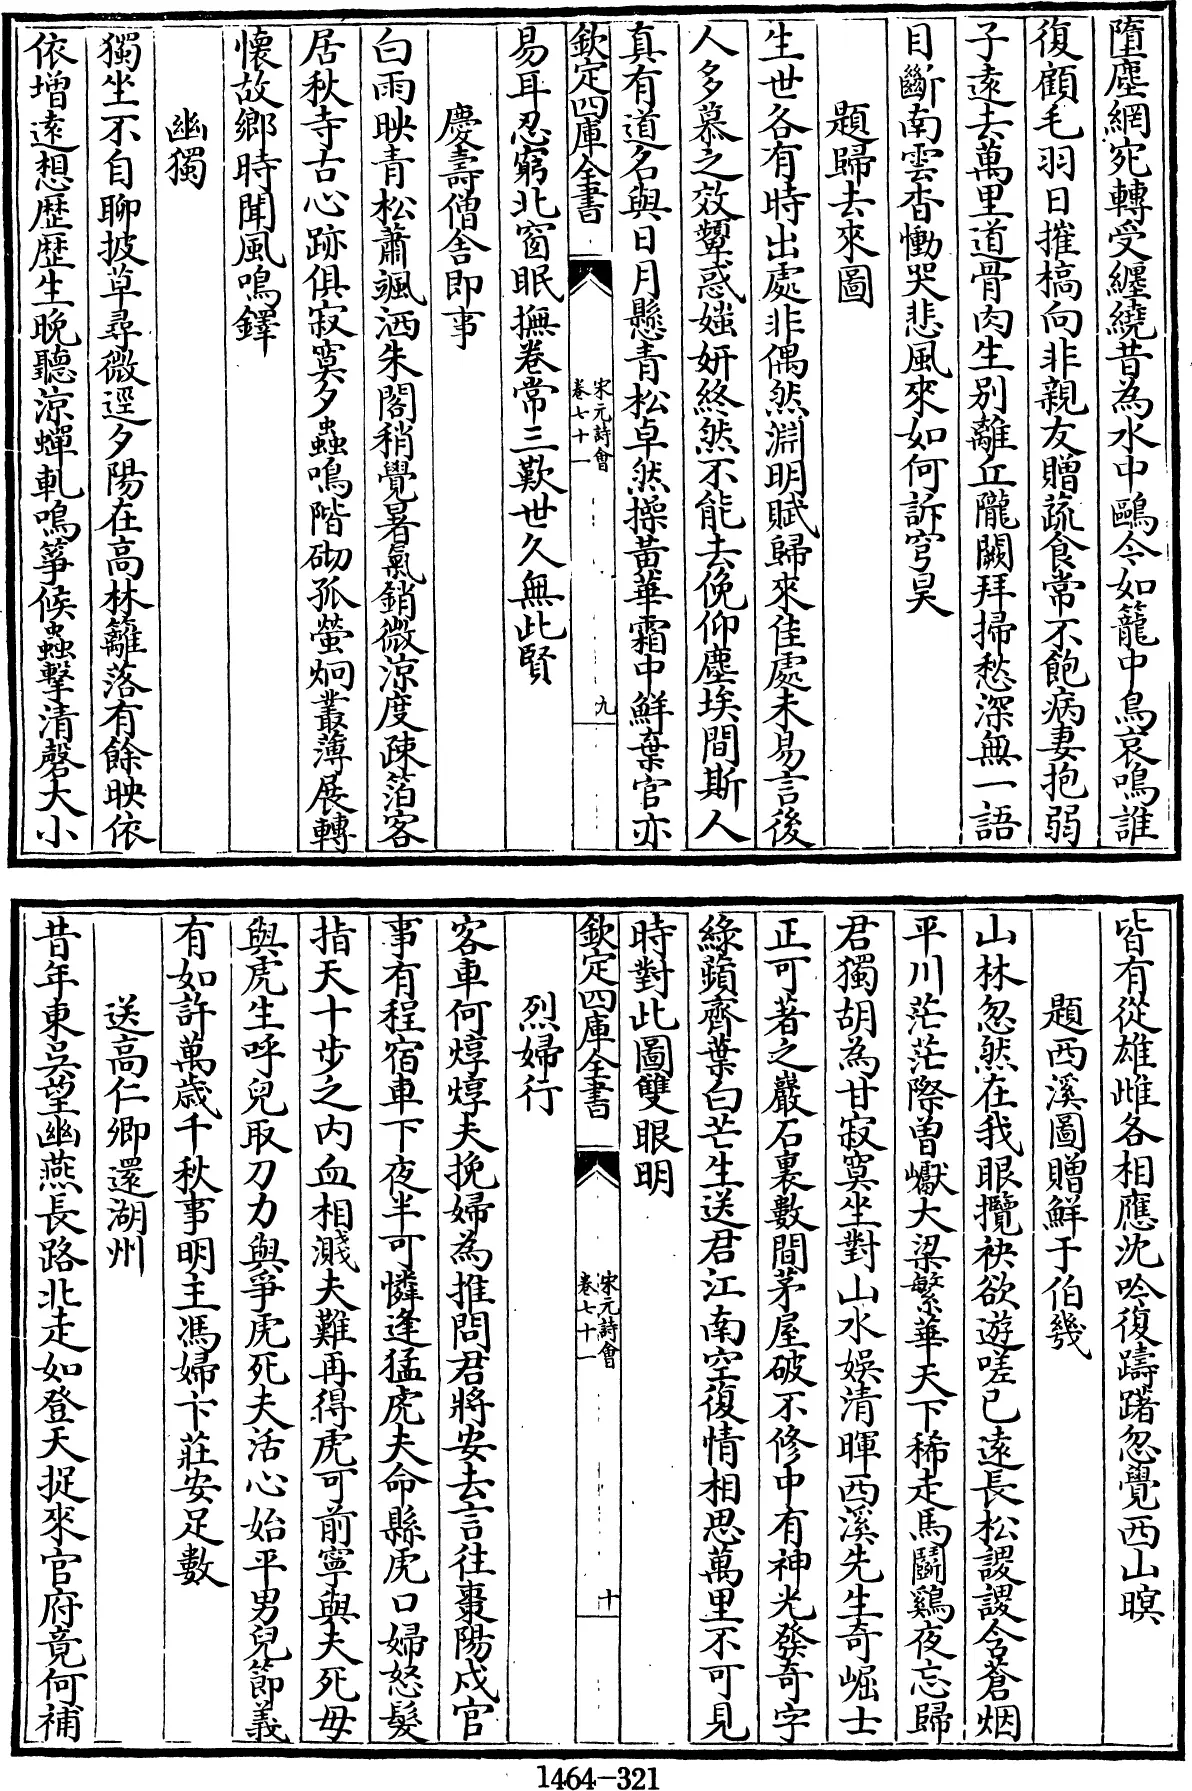 墮塵網宛轉受纒繞昔為水中鷗今如籠中鳥哀鳴誰
復顧毛羽日摧槁向非親友贈蔬食常不飽病妻抱弱
子遠去萬里道骨肉生別離丘隴闕拜掃愁深無一語
目斷南雲杳慟哭悲風來如何訴穹昊
題歸去來圖
生世各有時出處非偶然淵明賦歸來佳處未易言後
人多慕之效顰惑媸妍終然不能去俛仰塵埃間斯人
真有道名與日月懸青松卓然操黃華霜中鮮棄官亦
欽定四庫全書
宋元詩會
卷七十一
九
易耳忍窮北窗眠撫卷常三歎世久無此賢
慶壽僧舍即事
白雨映青松蕭颯洒朱閣稍覺暑氣銷微涼度疎箔客
居秋寺古心跡俱寂寞夕蟲鳴階砌孤螢炯叢薄展轉
懷故鄉時聞風鳴鐸
幽獨
獨坐不自聊披草尋微逕夕陽在高林籬落有餘映依
依增遠想歷歷生晚聽涼蟬軋鳴箏候蟲擊清磬大小
皆有從雄雌各相應沈吟復躊躇忽覺西山暝
題西溪圖贈鮮于伯幾
山林忽然在我眼攬袂欲遊嗟已遠長松謖謖含蒼烟
平川茫茫際曾巘大梁繁華天下稀走馬鬬鷄夜忘歸
君獨胡為甘寂寞坐對山水娛清暉西溪先生奇崛士
正可著之巖石裏數間茅屋破不修中有神光發奇字
綠蘋齊葉白芒生送君江南空復情相思萬里不可見
時對此圖雙眼明
欽定四庫全書
宋元詩會
卷七十一
十
烈婦行
客車何焞焞夫挽婦為推問君將安去言往棗陽戍官
事有程宿車下夜半可憐逢猛虎夫命縣虎口婦怒髮
指天十步之內血相濺夫難再得虎可前寧與夫死毋
與虎生呼兒取刀力與爭虎死夫活心始平男兒節義
有如許萬歲千秋事明主馮婦卞莊安足數
送高仁卿還湖州
昔年東吳望幽燕長路北走如登天捉來官府竟何補
1464-321